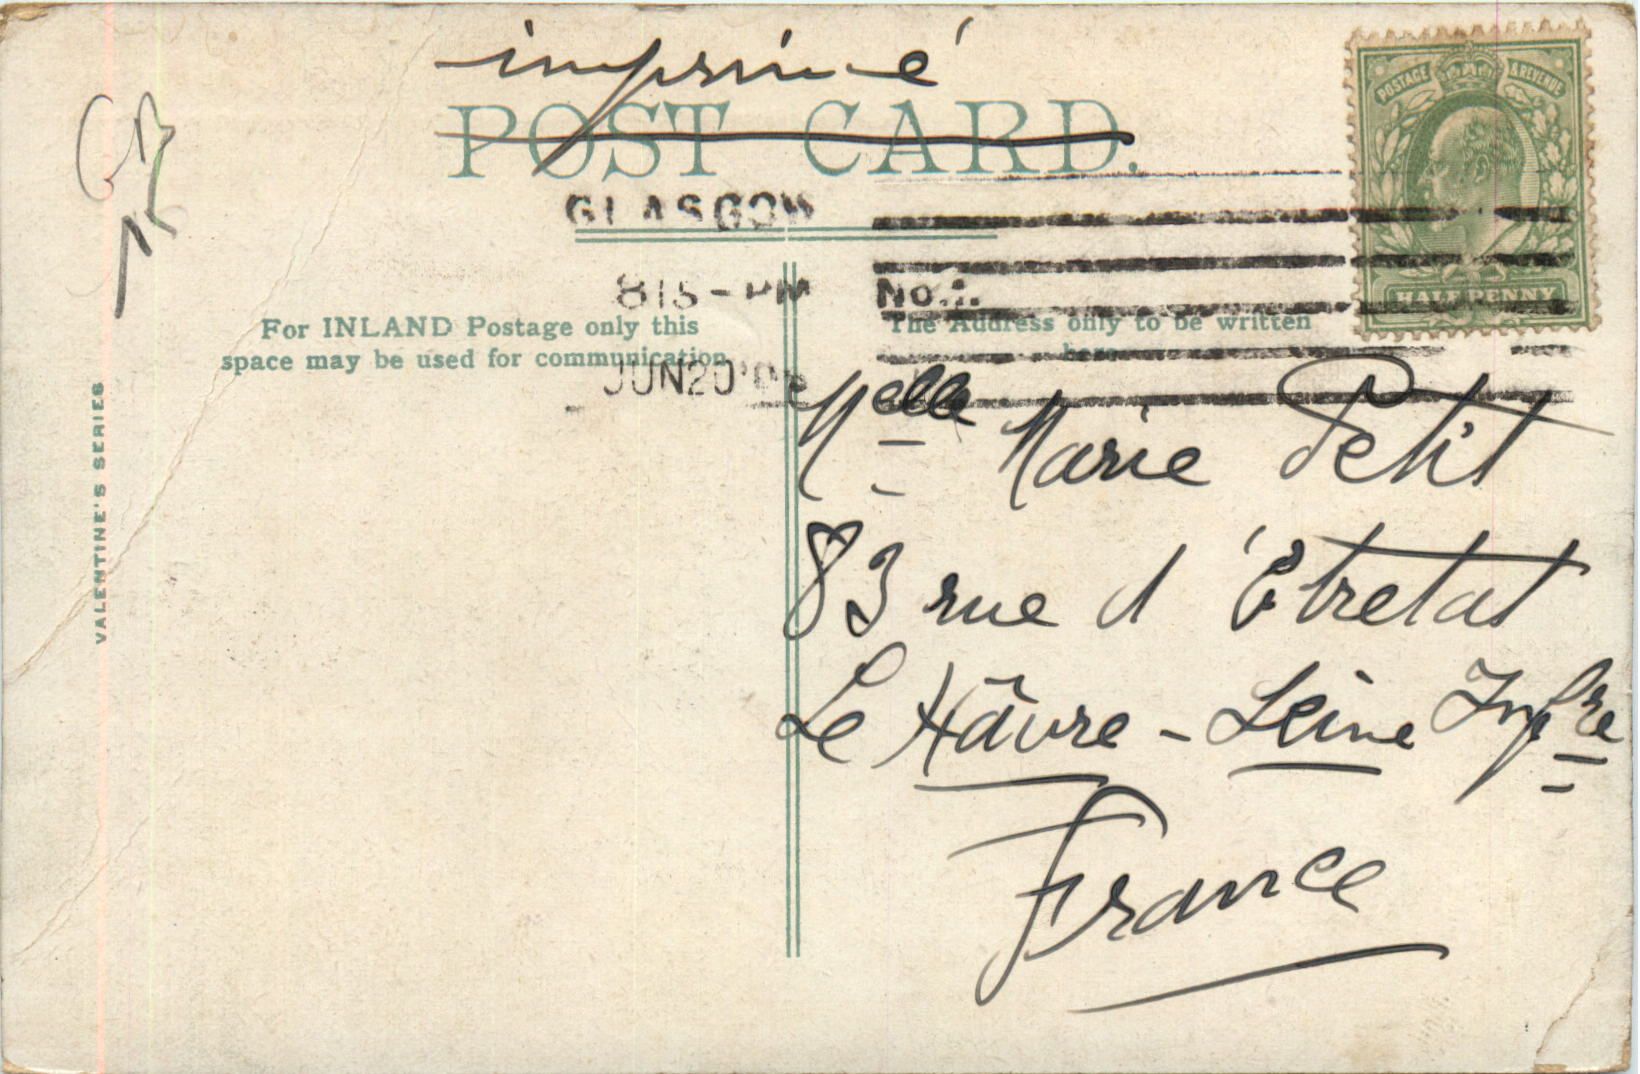 imprimé
POST CARD.
POSTAGE & REVENUE
HALFPENNY
GLASGOW
815-PM No.1.
JUN 20
For INLAND Postage only this
space may be used for communication
The Address only to be written
here
VALENTINE'S SERIES
Melle Marie Petit
83 rue d'Étretat
Le Hâvre - Seine Infre
France